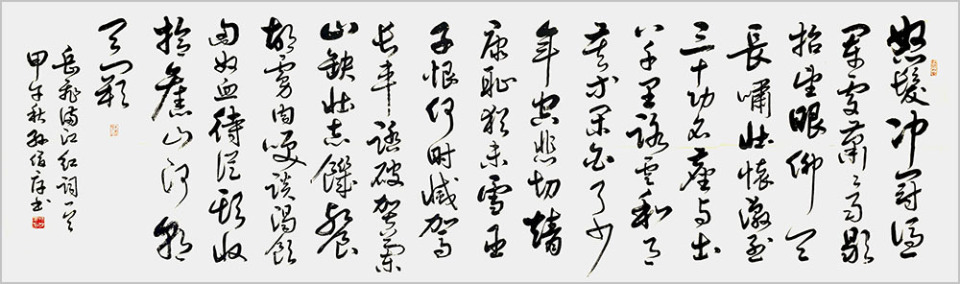 怒髮冲冠憑
闌處蕭蕭雨歇
抬望眼仰天
長嘯壯懷激烈
三十功名塵與土
八千里路雲和月
莫等閑白了少
年空悲切靖
康恥猶未雪臣
子恨何時滅駕
長車踏破賀蘭
山缺壯志饑餐
胡虜肉笑談渴飲
匈奴血待從頭收
拾舊山河朝
天闕
岳飛滿江紅詞一首
甲午秋孫书